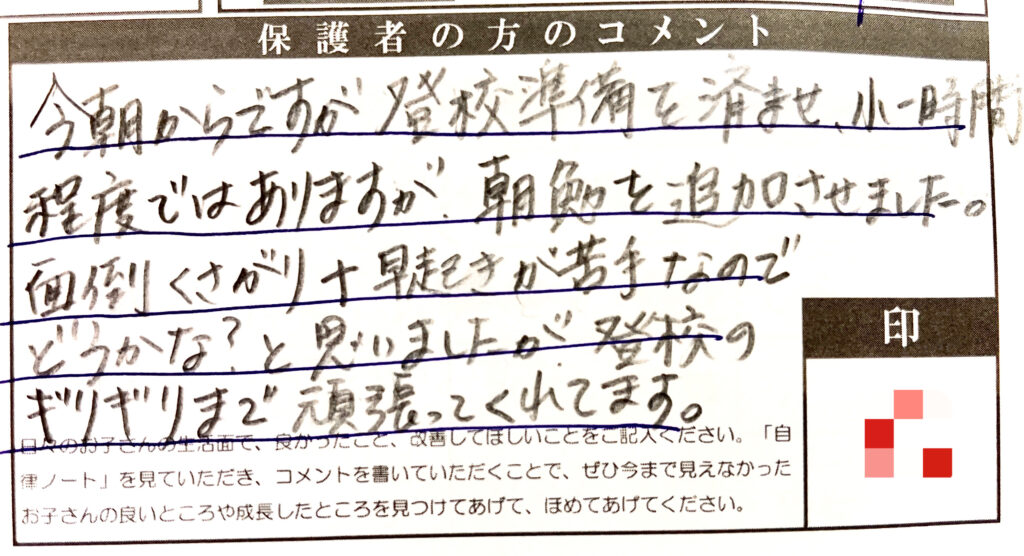 保護者の方のコメント
今朝からですが登校準備を済ませ、小一時間
程度ではありますが、朝勉を追加させました。
面倒くさがり+早起きが苦手なので
どうかな?と思いましたが、登校の
ギリギリまで頑張ってくれてます。
印
日々のお子さんの生活面で、良かったこと、改善してほしいことをご記入ください。「自
律ノート」を見ていただき、コメントを書いていただくことで、ぜひ今まで見えなかった
お子さんの良いところや成長したところを見つけてあげて、ほめてあげてください。